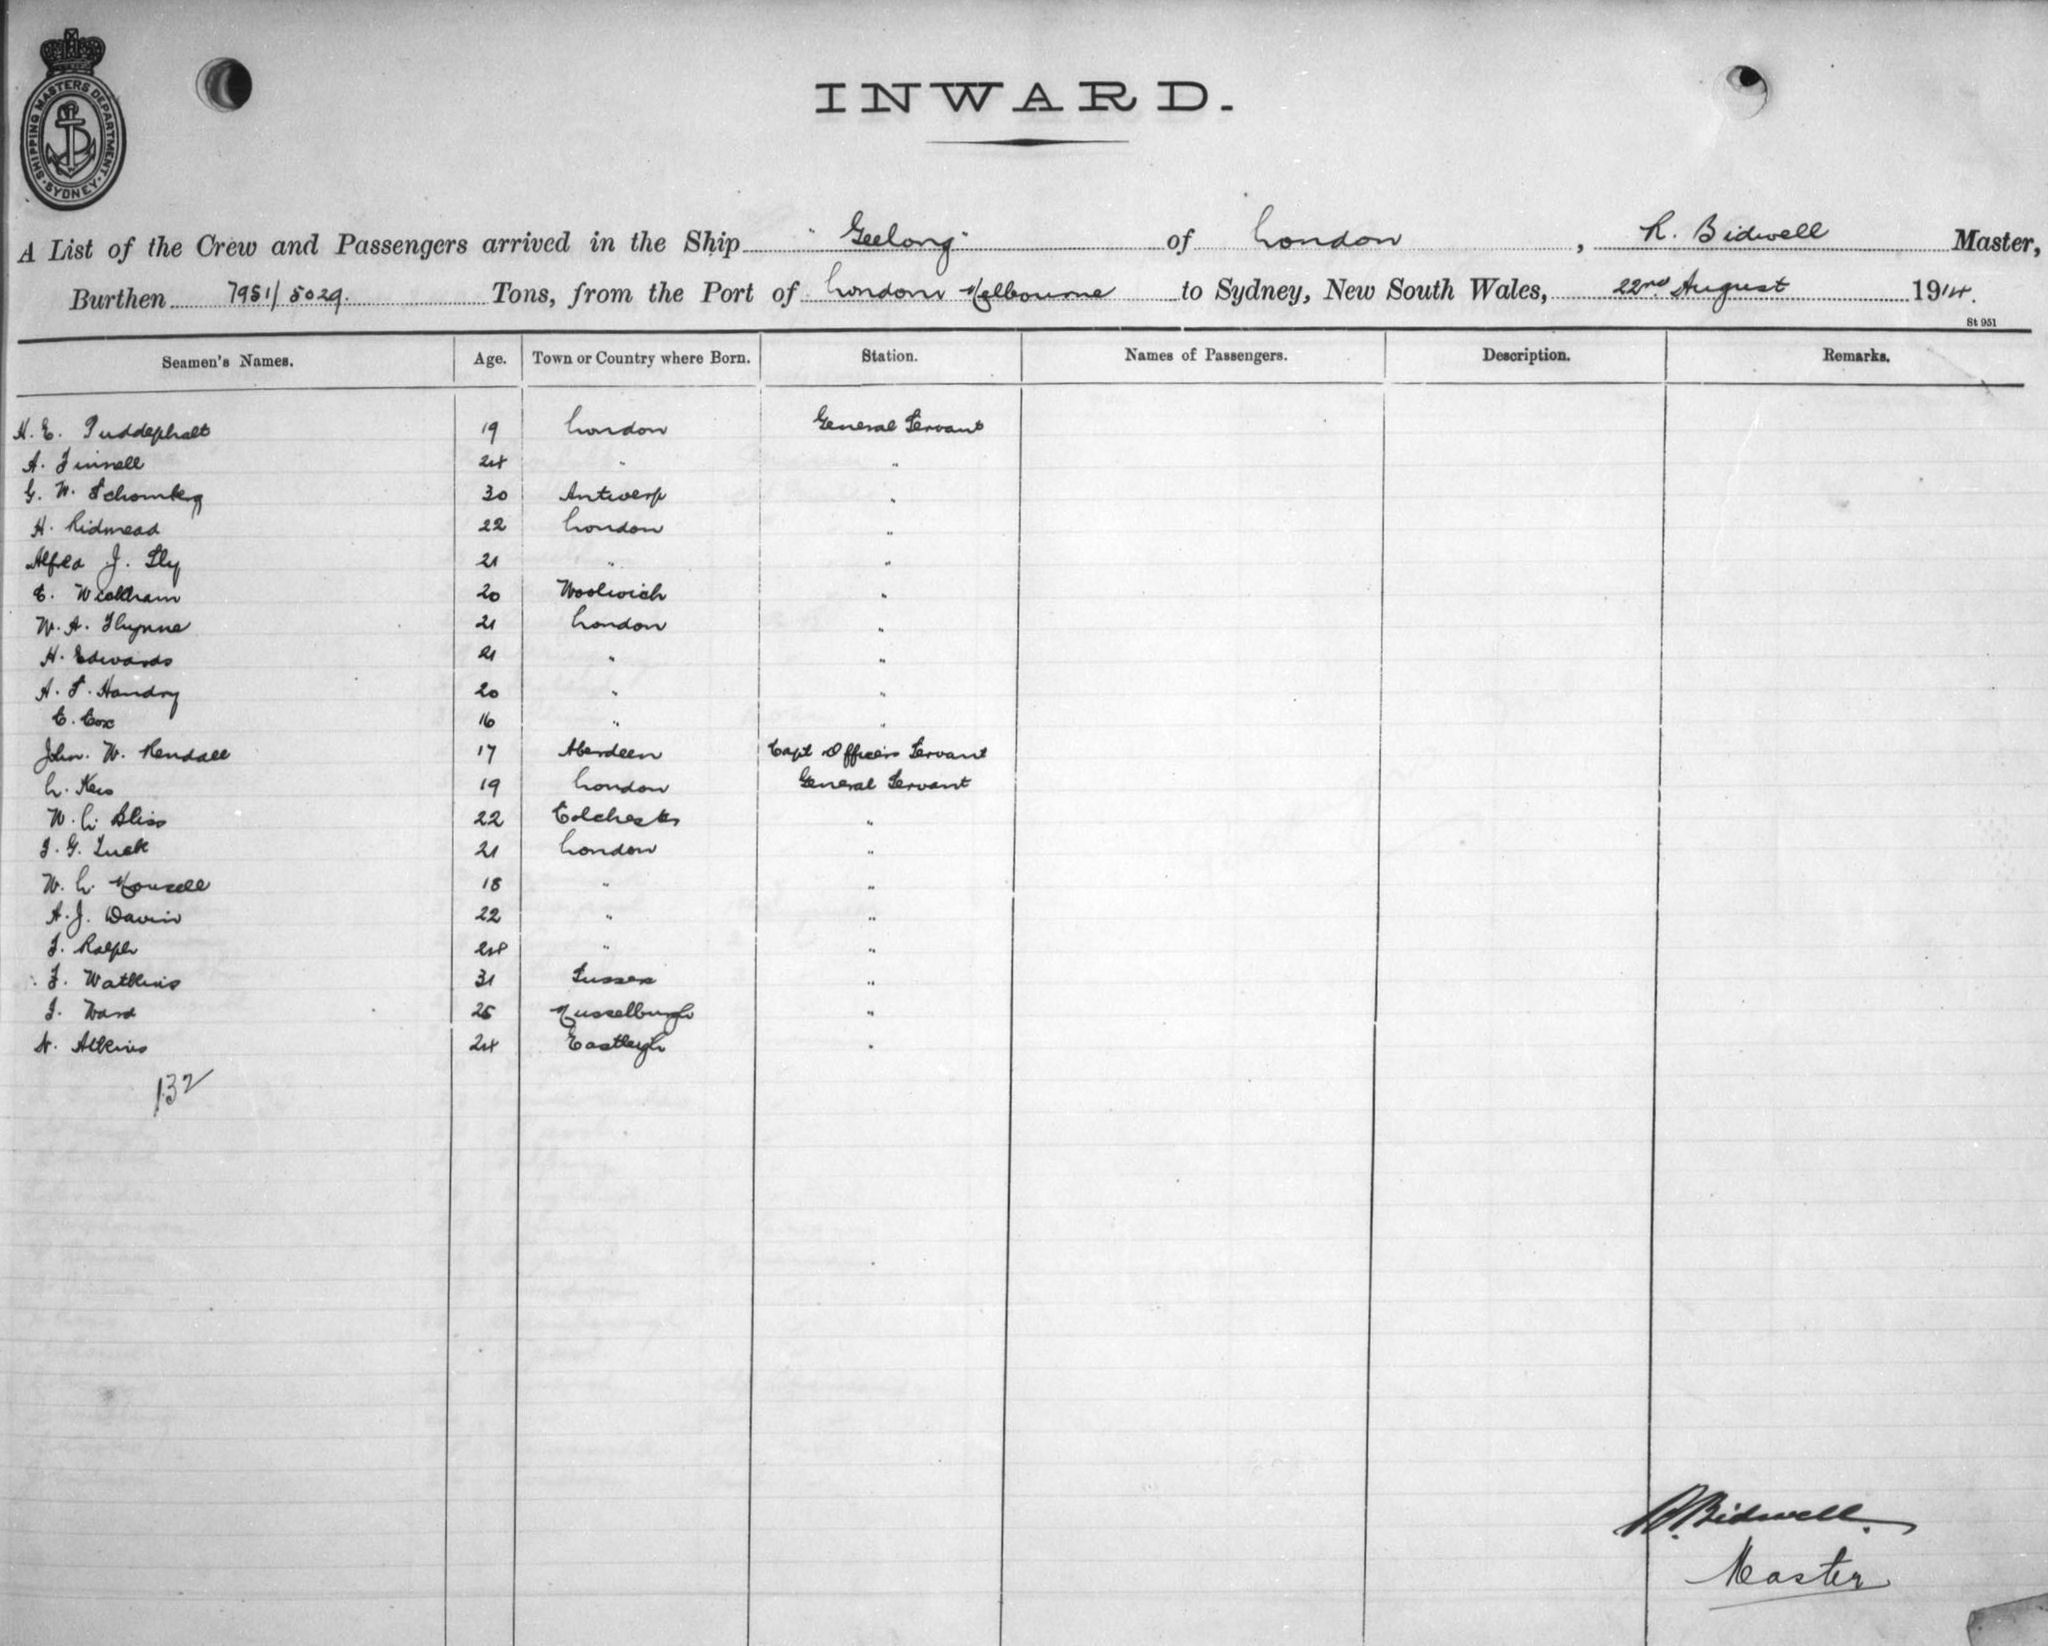 SHIPPING MASTERS DEPARTMENT · SYDNEY ·
INWARD.
A List of the Crew and Passengers arrived in the Ship "Geelong" of London, R. Bidwell Master,
Burthen 7951/5029. Tons, from the Port of London Melbourne to Sydney, New South Wales, 22nd August 1914.
St 951
Seamen's Names. Age. Town or Country where Born. Station. Names of Passengers. Description. Remarks.
H. E. Puddephatt 19 London General Servant
A. 24 " "
G. W. Schomberg 30 Antwerp "
H. Lidmead 22 London "
Alfred J. Sly 21 " "
E. Wickham 20 Woolwich "
W. A. 21 London "
H. Edwards 21 " "
A. S. Handry 20 " "
C. Cox 16 " "
John. W. Kendall 17 Aberdeen Capt Officers Servant
L. 19 London General Servant
W. L. Bliss 22 Colchester "
21 London "
W. L. Mousell 18 " "
A. J. Davis 22 " "
Ralph 24 " "
F. Watkins 31 Sussex "
Ward 25 Musselburgh "
N. Atkins 24 Eastleigh "
132
R. Bidwell.
Master